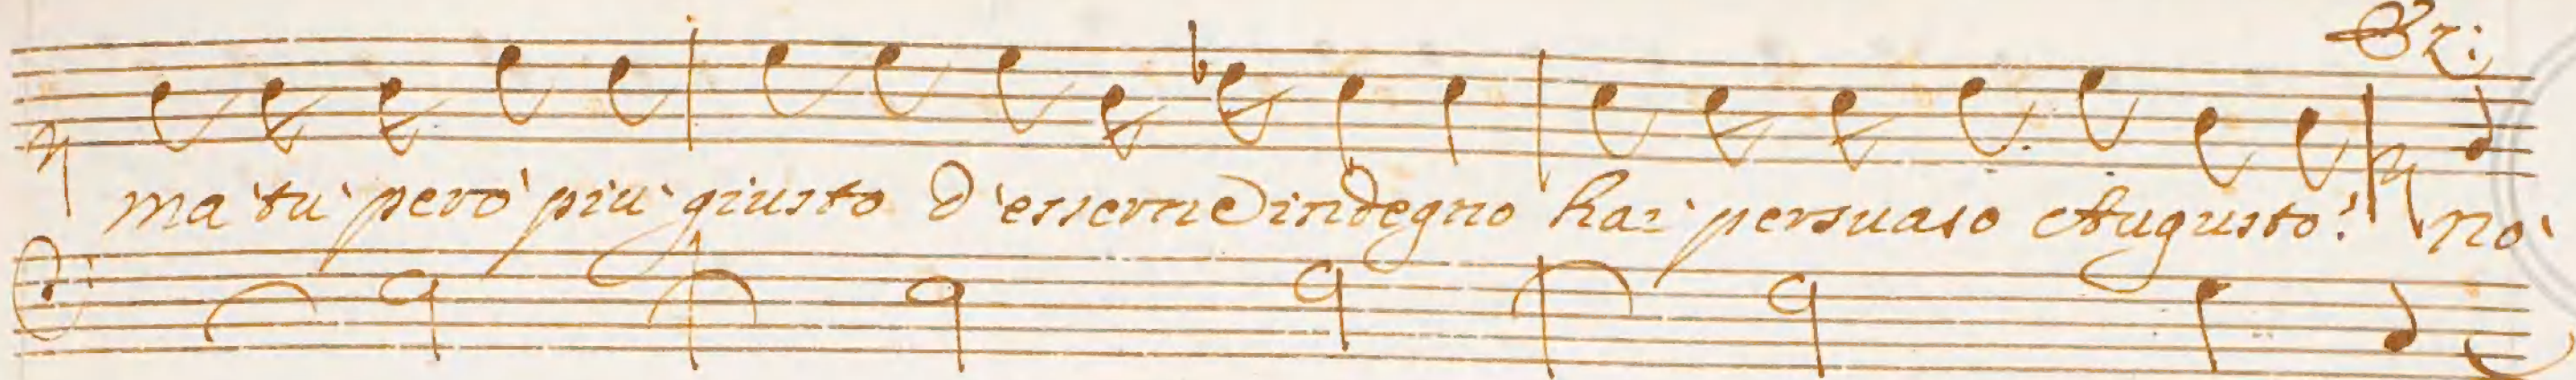 Er:
ma tu però più giusto d'esserne indegno hai persuaso Augusto! no